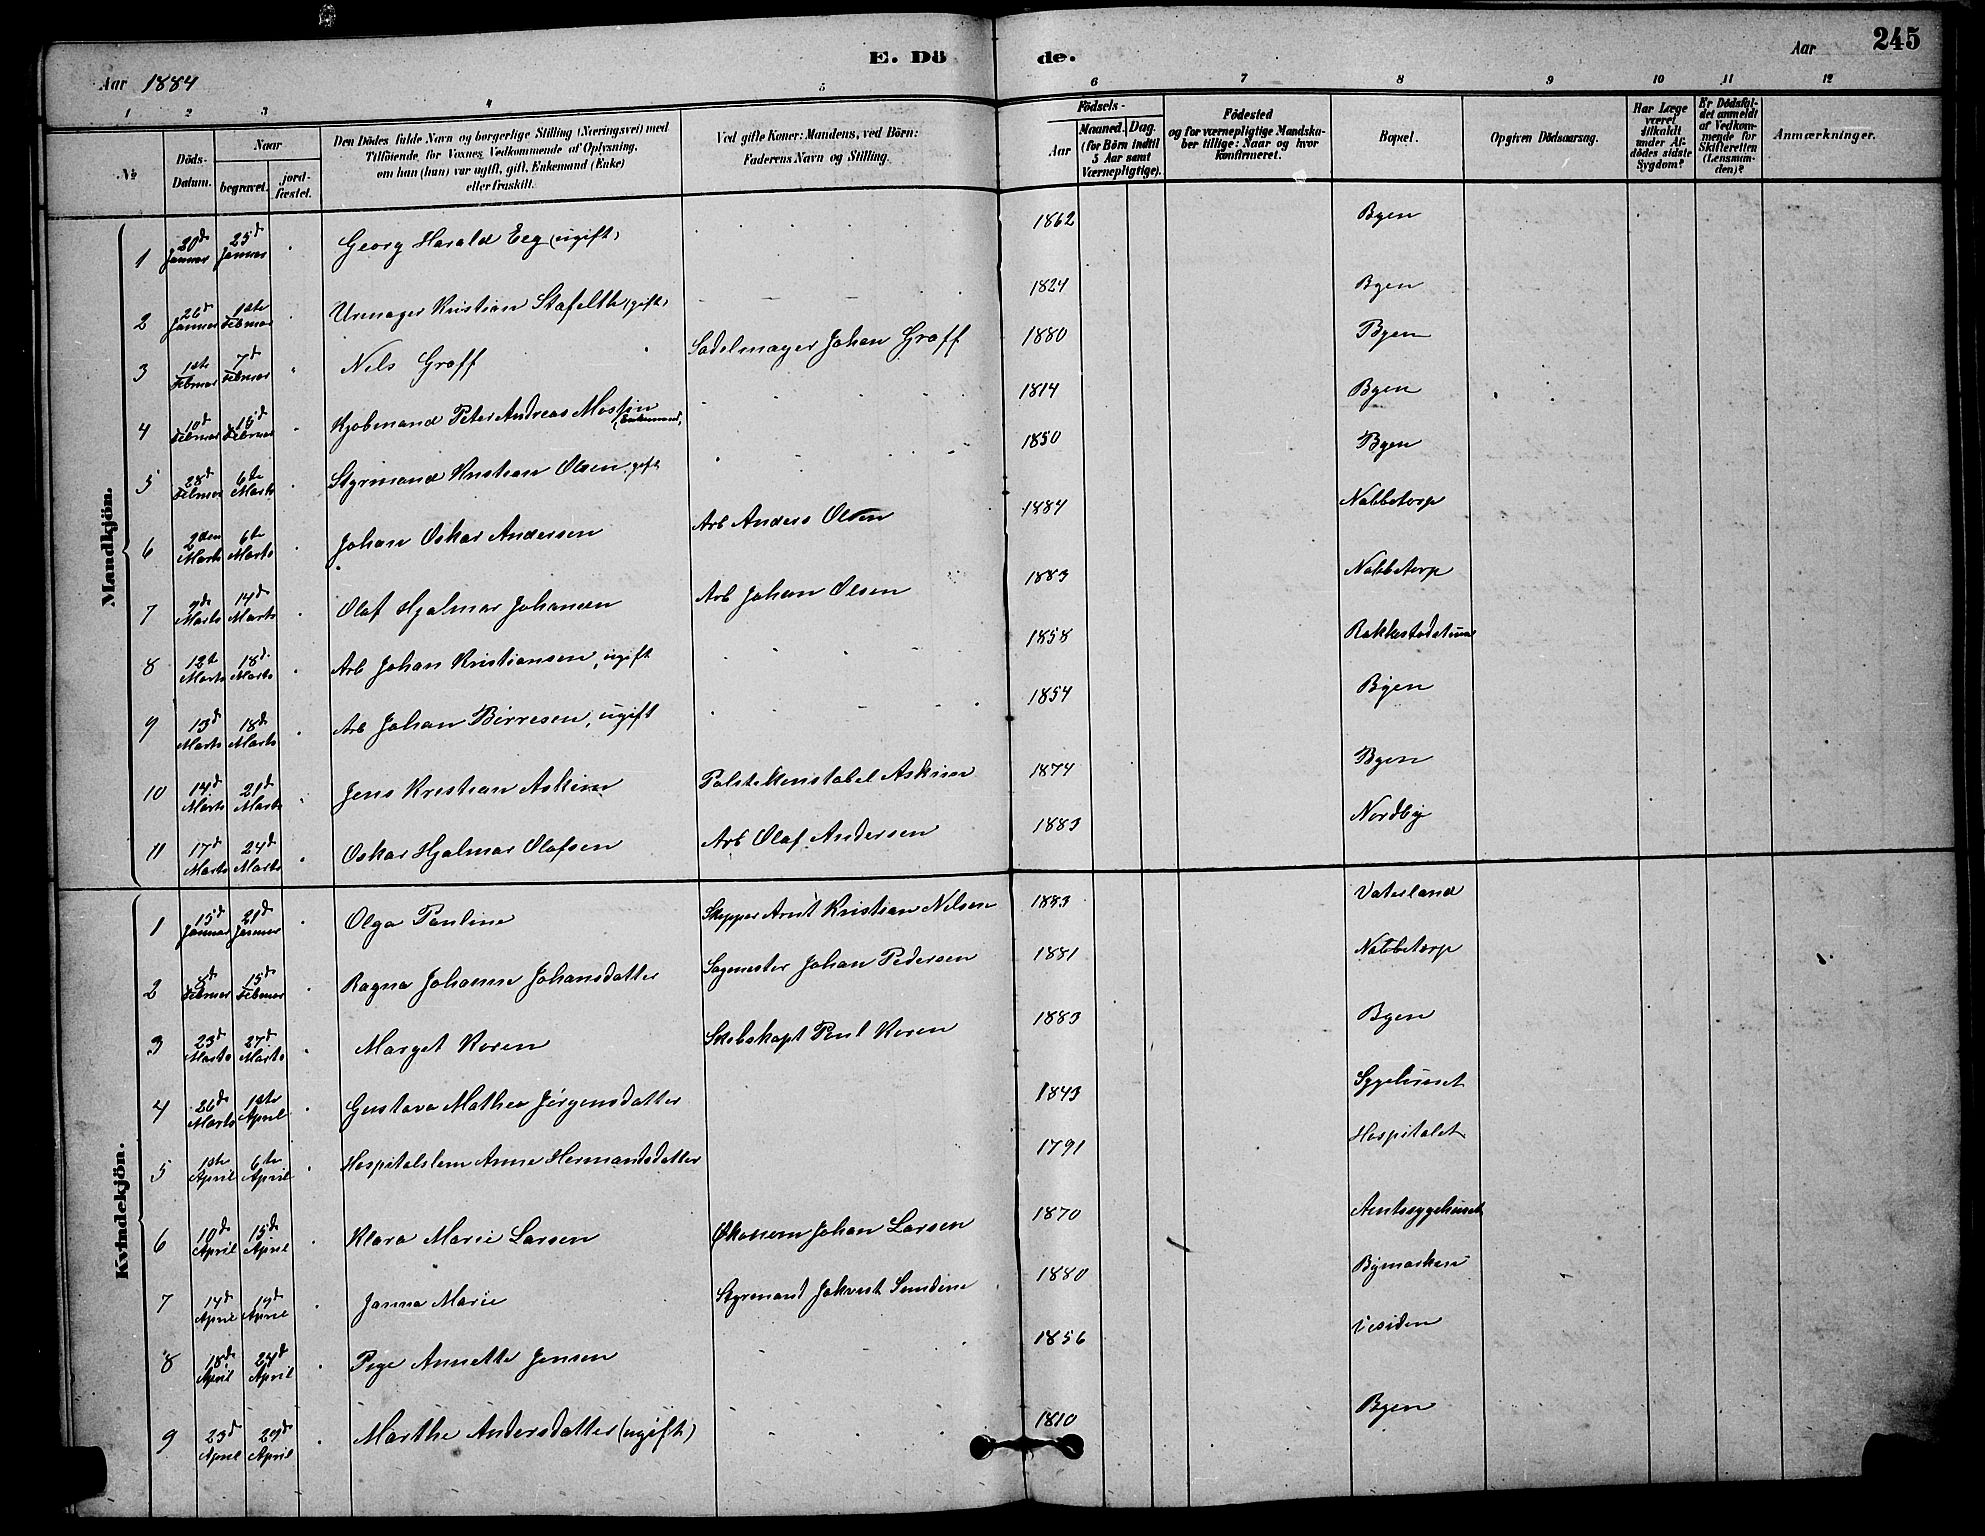 E. Dö de.
245
Aar 1884
Aar
1 2 3 4 5 6 7 8 9 10 11 12
№
Döds-Datum.
Naar
begravet.
jord-fæstet.
Den Dödes fulde Navn og borgerlige Stilling (Næringsvei) med
Tilföiende, for Voxnes Vedkommende af Oplysning,
om han (hun) var ugift, gift, Enkemand (Enke)
eller fraskilt.
Ved gifte Koner: Mandens, ved Börn:
Faderens Navn og Stilling.
Födsels-
Aar
Maaned. Dag.
(for Börn indtil
5 Aar samt
Værnepligtige).
Födested
og for værnepligtige Mandska-
ber tillige: Naar og hvor
konfirmeret.
Bopæl.
Opgiven Dödsaarsag.
Har Læge
været
tilkaldt
under Af-
dödes sidste
Sygdom?
Er Dödsfal-
det anmeldt
af Vedkom-
mende for
Skifteretten
(Lensman-
den)?
Anmærkninger.
Mandkjön.
1 20d Januar 25d Januar Georg Harald Eeg (ugift) 1862 Byen
2 26d Januar 1ste Februar Urmager Kristian Stafelth (gift) 1824 Byen
3 1ste Februar 7d Februar Nils Graff Sadelmager Johan Graff 1880 Byen
4 10d Februar 15d Februar Kjøbmand Peter Andreas Mostin, Enkemand, 1814 Byen
5 28d Februar 6te Marts Styrmand Kristian Olsen, gift 1850 Byen
6 2den Marts 6te Marts Johan Oskar Andersen Arb Anders Olsen 1884 Nabbetorp
7 9de Marts 14d Marts Olaf Hjalmar Johansen Arb Johan Olsen 1883 Nabbetorp
8 12te Marts 18d Marts Arb Johan Kristiansen, ugift 1858
9 13d Marts 18d Marts Arb Johan Børresen, ugift 1854 Byen
10 14d Marts 21d Marts Jens Kristian Askim Politikonstabel Askim 1874 Byen
11 17d Marts 24d Marts Oskar Hjalmar Olafsen Arb Olaf Andersen 1883 Nordby
Kvindekjön.
1 15d Januar 21d Januar Olga Pauline Skipper Arnt Kristian Nilsen 1883 Vaterland
2 Februar 15d Februar Ragna Johanne Johansdatter Sagmester Johan Pedersen 1881 Nabbetorp
3 23d Marts 27d Marts Marget Koren Skibskapt Poul Koren 1883 Byen
4 26d Marts 1ste April Gustava Mathea Jørgensdatter 1843 Sygehuset
5 1ste April 6te April Hospitalslem Anne Hermandsdatter 1791 Hospitalet
6 10d April 15d April Klara Marie Larsen Økonom Johan Larsen 1870 Amtssygehuset
7 14d April 19d April Janna Marie Styrmand 1880 Bymarken
8 18d April 24d April Pige Annette Jensen 1856 Vesiden
9 23d April 29d April Marthe Andersdatter (ugift) 1810 Byen